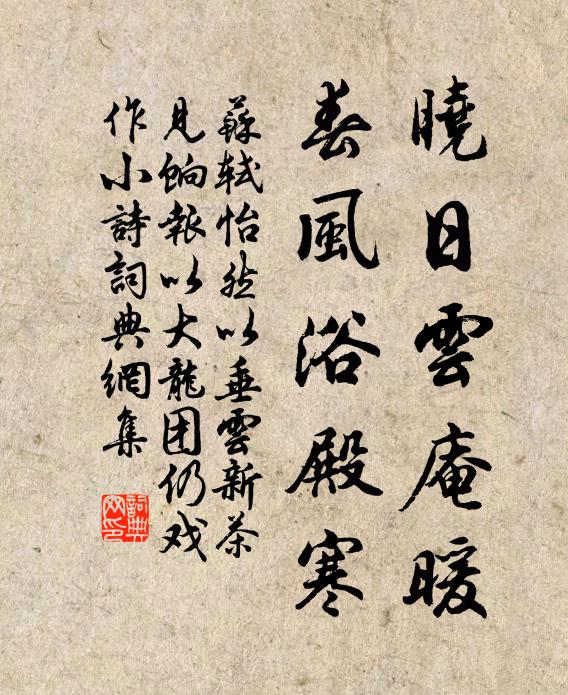 曉日雲庵暖
春風浴殿寒
蘇軾怡然以垂雲新茶
見餉報以大龍团仍戏
作小詩詞典網集
詞典
网印